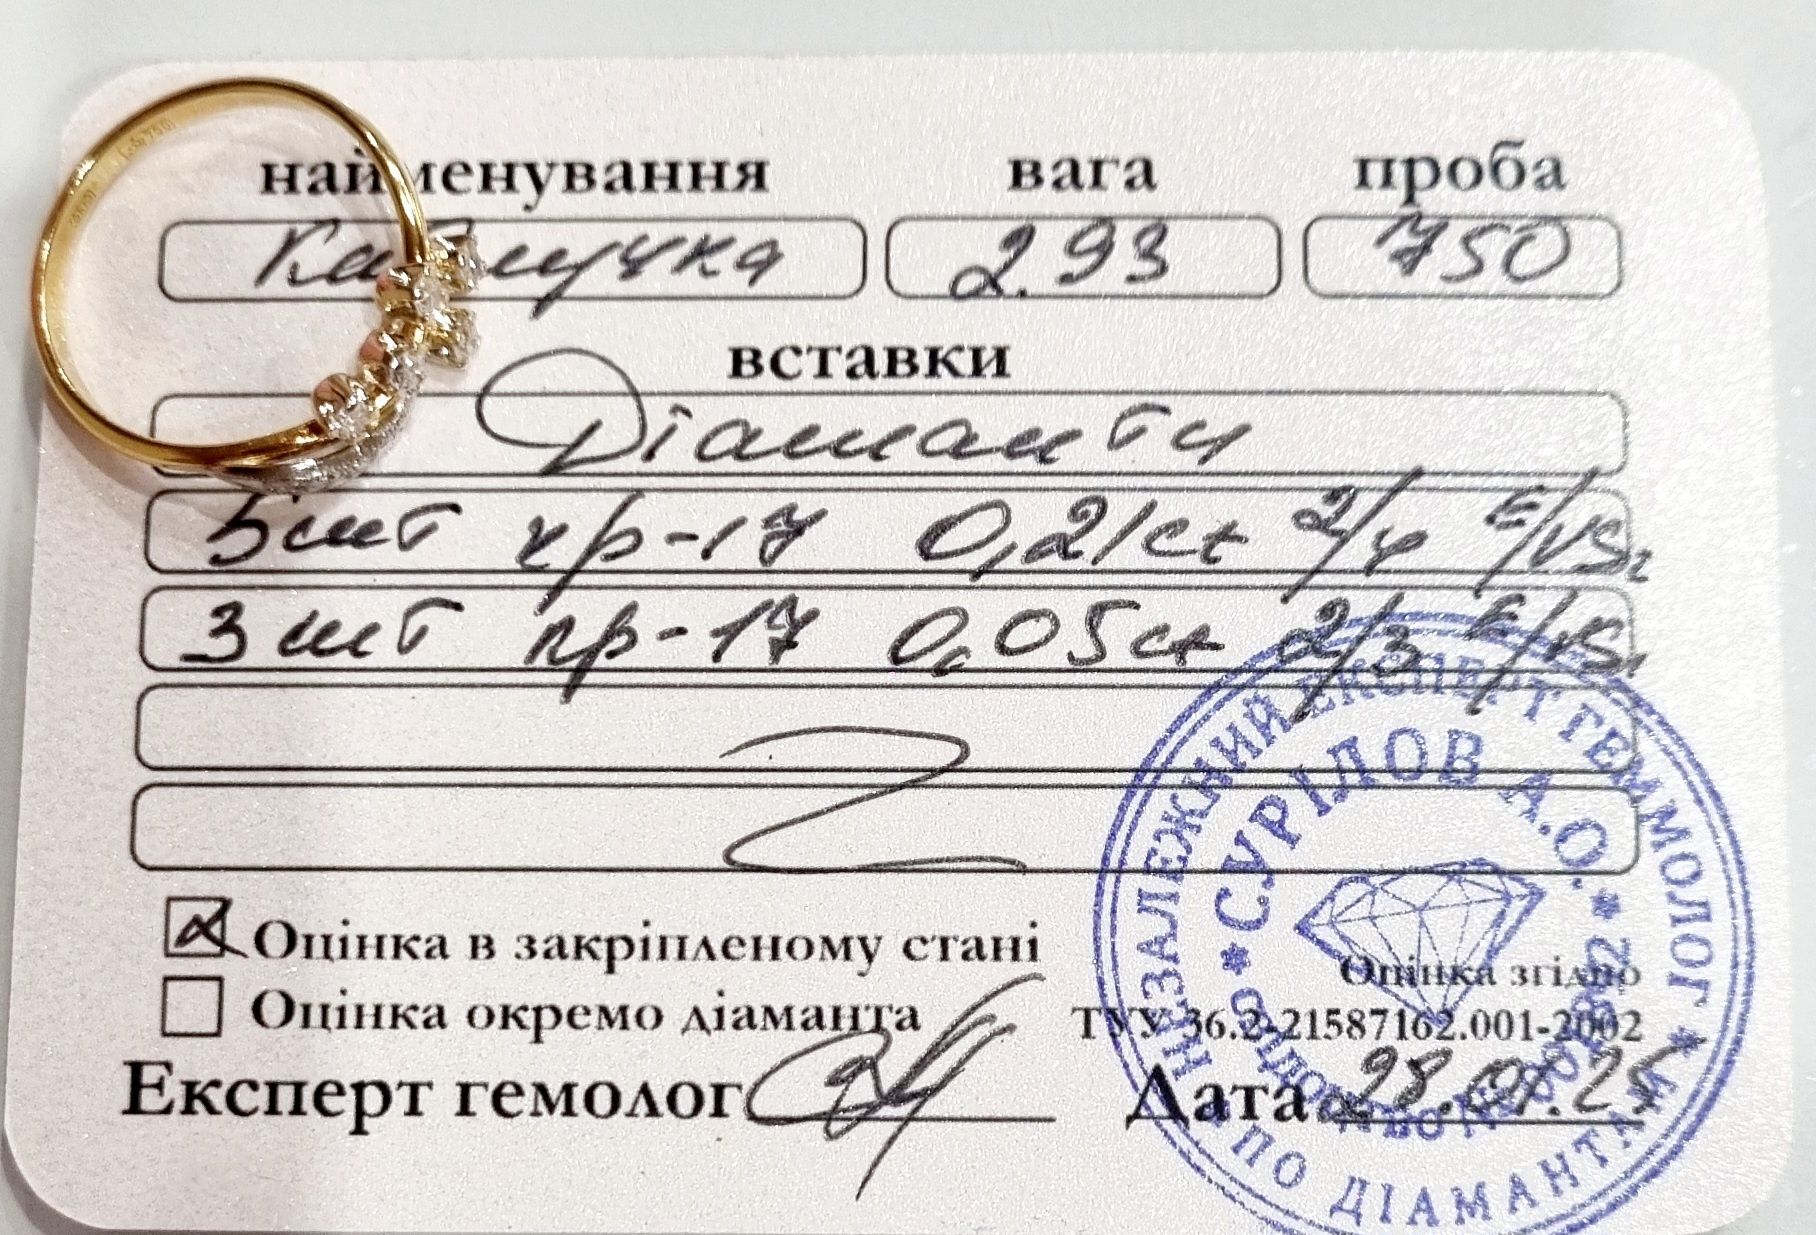 найменування вага проба
Каблучка 2.93 750
вставки
Діаманти
5 шт кр-17 0,21ct 2/4 E/VS2
3 шт кр-17 0,05ct 2/3 E/VS1
Оцінка в закріпленому стані
Оцінка окремо діаманта
Оцінка згідно
ТУУ 36.2-21587162.001-2002
Експерт гемолог Дата 28.01.25
НЕЗАЛЕЖНИЙ ЕКСПЕРТ ГЕММОЛОГ
ПО ДІАМАНТАМ
СУРІЛОВ А.О.
750